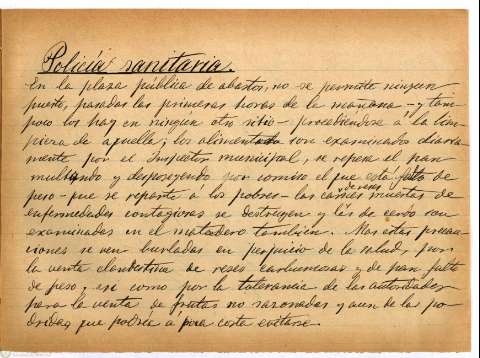 Policía sanitaria.
En la plaza pública de abastos, no se permite ningun
puesto, pasadas las primeras horas de la mañana - y tam-
poco los hay en ningun otro sitio - procediendose á la lim-
pieza de aquella; los alimentos son examinados diaria-
mente por el Inspector municipal, se repesa el pan
multando y despojando por comiso el que está falto de
peso - que se reparte á los pobres - las carnes de reses muertas de
enfermedades contagiosas se destruyen y las de cerdo son
examinadas en el matadero tambien. Mas estas precau-
ciones se ven burladas en perjuicio de la salud, por
la venta clandestina de reses carbuncosas y de pan falto
de peso, así como por la tolerancia de las autoridades
para la venta de frutas no sazonadas y aun de las po-
dridas, que podría á poca costa evitarse.